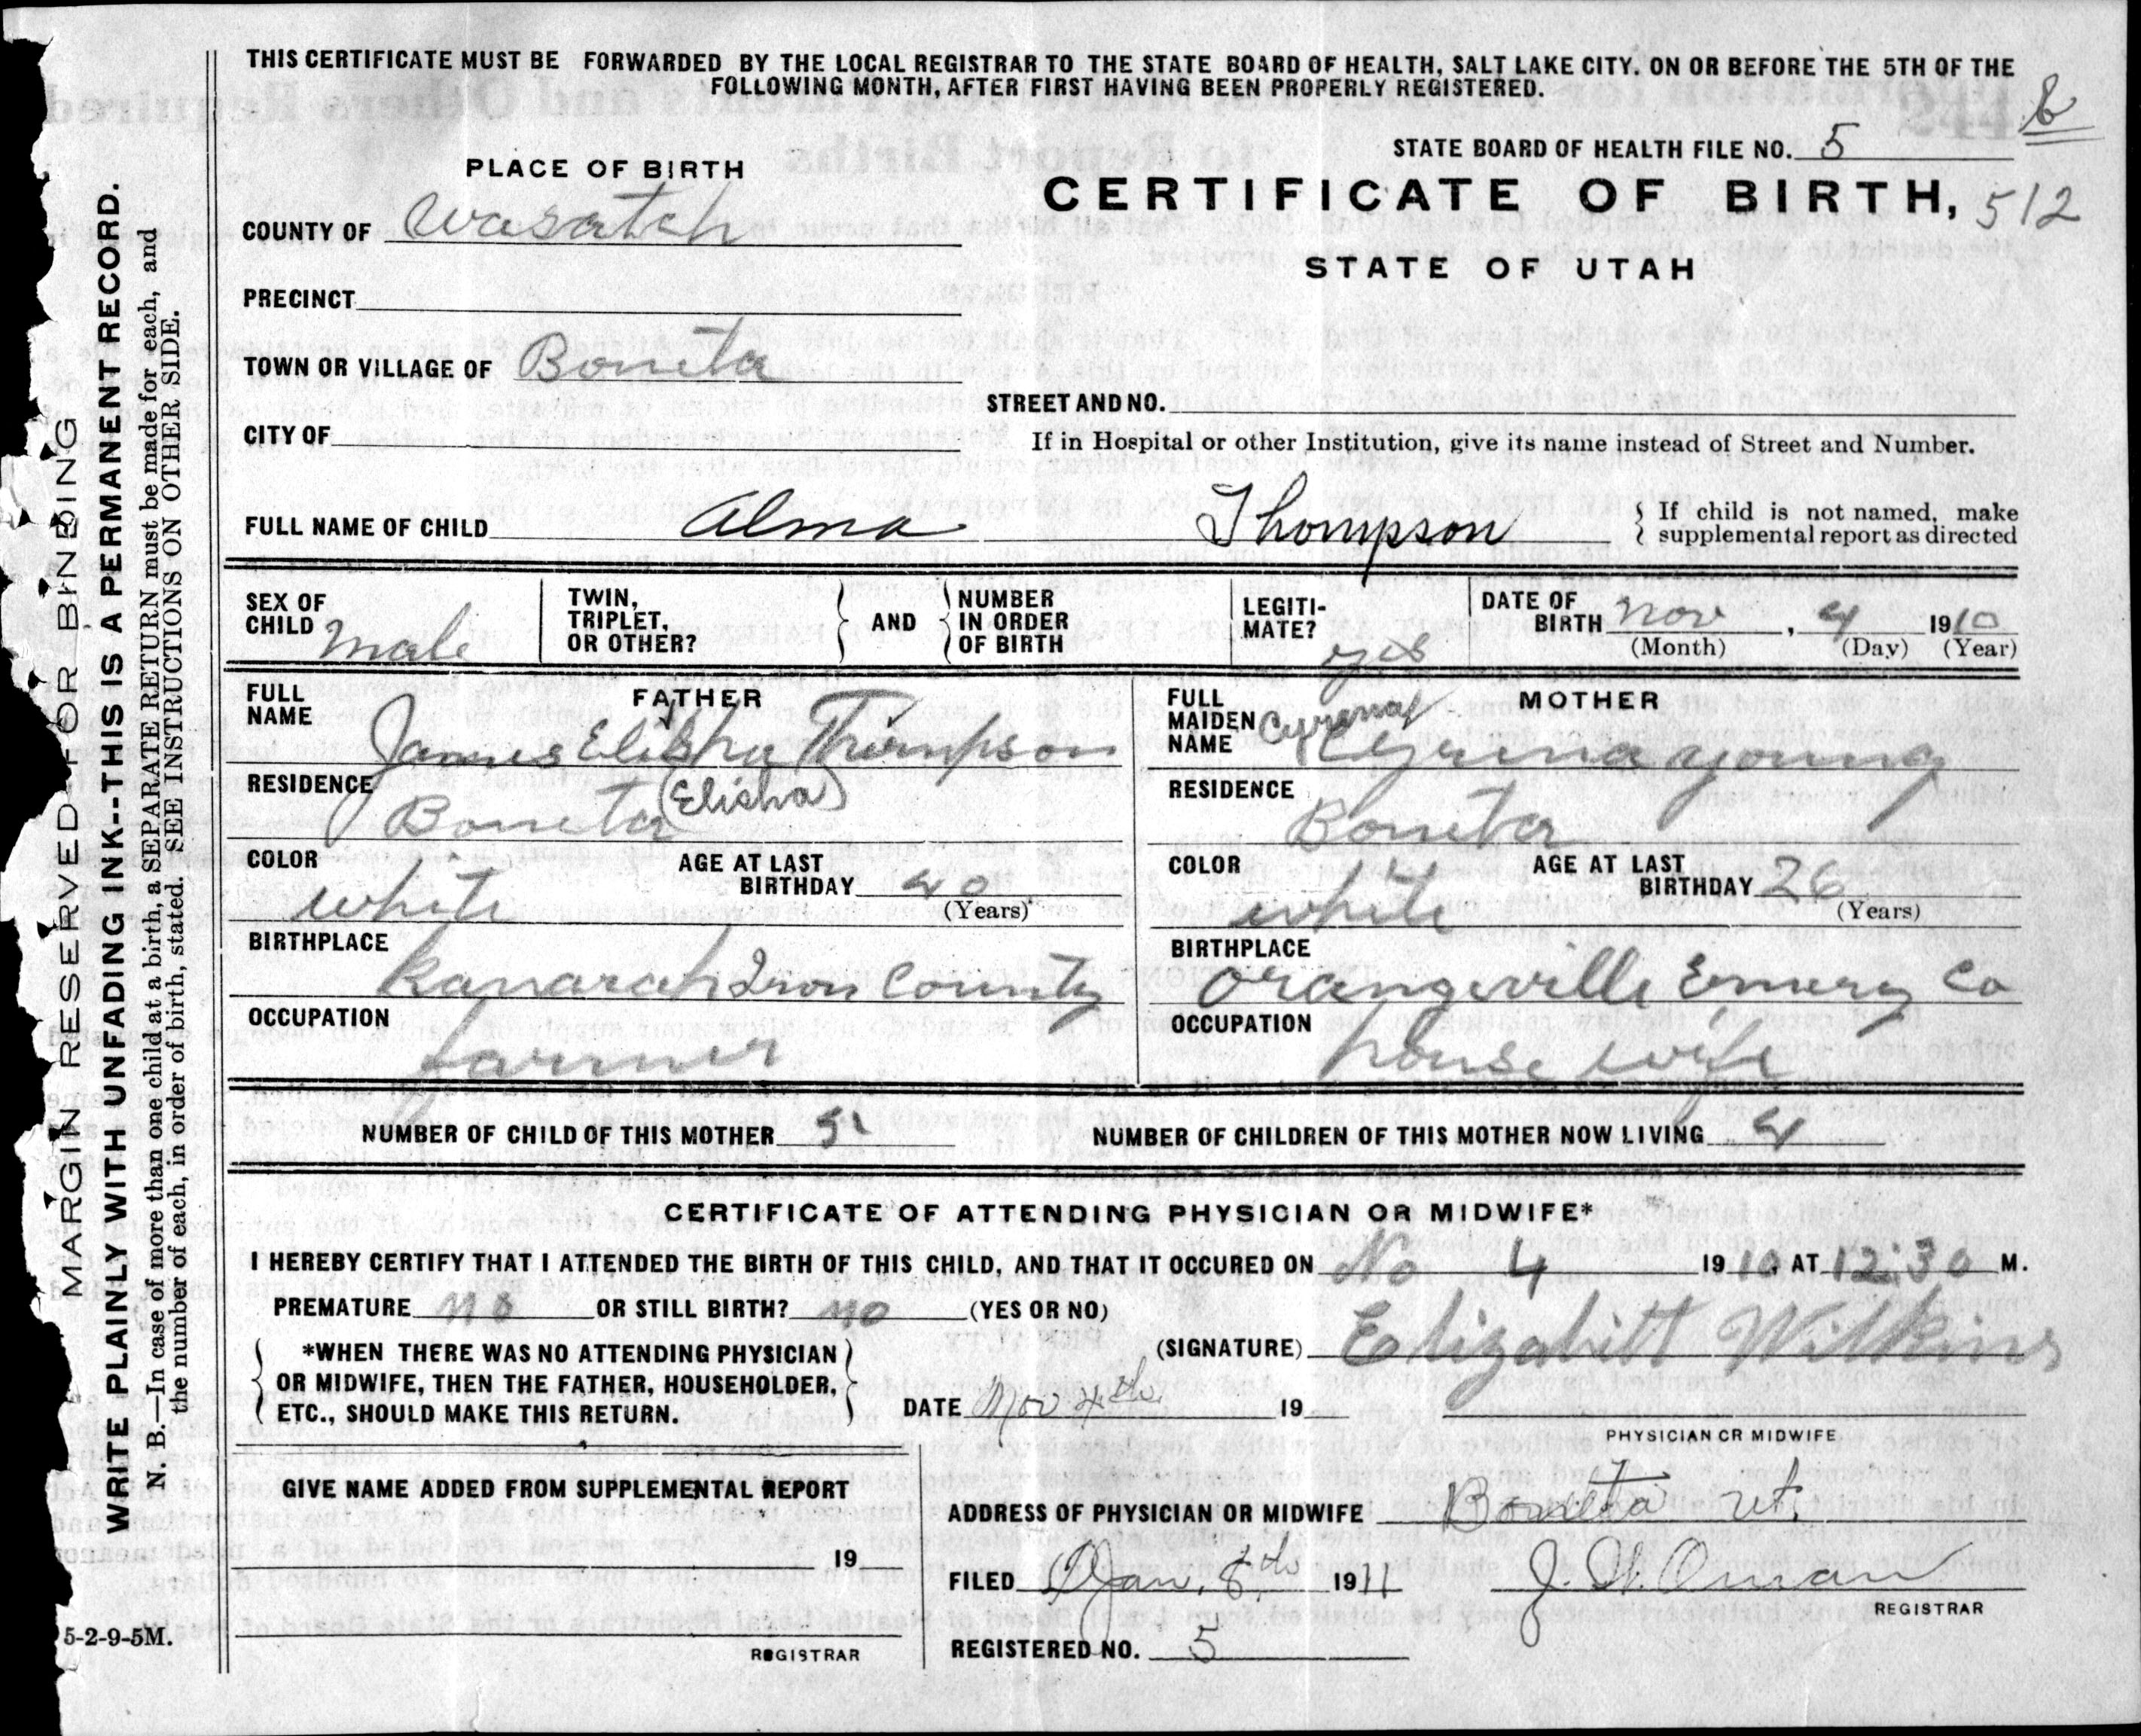 THIS CERTIFICATE MUST BE FORWARDED BY THE LOCAL REGISTRAR TO THE STATE BOARD OF HEALTH, SALT LAKE CITY. ON OR BEFORE THE 5TH OF THE
FOLLOWING MONTH, AFTER FIRST HAVING BEEN PROPERLY REGISTERED.
STATE BOARD OF HEALTH FILE NO. 5
PLACE OF BIRTH
CERTIFICATE OF BIRTH, 512
COUNTY OF Wasatch
STATE OF UTAH
PRECINCT
TOWN OR VILLAGE OF Boneta
STREET AND NO.
CITY OF
If in Hospital or other Institution, give its name instead of Street and Number.
FULL NAME OF CHILD Alma Thompson
If child is not named, make
supplemental report as directed
SEX OF CHILD Male
TWIN, TRIPLET, OR OTHER?
AND
NUMBER IN ORDER OF BIRTH
LEGITI-MATE? yes
DATE OF BIRTH Nov, 4 1910
(Month) (Day) (Year)
FATHER
FULL NAME James Elisha Thompson
(Elisha)
RESIDENCE Boneta
COLOR white
AGE AT LAST BIRTHDAY 40
(Years)
BIRTHPLACE Kanarah Iron County
OCCUPATION farmer
MOTHER
FULL MAIDEN NAME Cyrena Cyrena young
RESIDENCE Boneta
COLOR white
AGE AT LAST BIRTHDAY 26
(Years)
BIRTHPLACE Orangeville Emery Co
OCCUPATION house wife
NUMBER OF CHILD OF THIS MOTHER 5
NUMBER OF CHILDREN OF THIS MOTHER NOW LIVING 4
CERTIFICATE OF ATTENDING PHYSICIAN OR MIDWIFE*
I HEREBY CERTIFY THAT I ATTENDED THE BIRTH OF THIS CHILD, AND THAT IT OCCURED ON No 4 1910, AT 12:30 M.
PREMATURE no OR STILL BIRTH? no (YES OR NO)
*WHEN THERE WAS NO ATTENDING PHYSICIAN
OR MIDWIFE, THEN THE FATHER, HOUSEHOLDER,
ETC., SHOULD MAKE THIS RETURN.
(SIGNATURE) Elizabitt Wilkins
DATE Nov 4th 19
PHYSICIAN OR MIDWIFE
GIVE NAME ADDED FROM SUPPLEMENTAL REPORT
19
REGISTRAR
ADDRESS OF PHYSICIAN OR MIDWIFE Boneta Ut.
FILED Jan. 8th 1911
J. W. Oman
REGISTRAR
REGISTERED NO. 5
5-2-9-5M.
MARGIN RESERVED FOR BINDING
WRITE PLAINLY WITH UNFADING INK--THIS IS A PERMANENT RECORD.
N. B.—In case of more than one child at a birth, a SEPARATE RETURN must be made for each, and
the number of each, in order of birth, stated. SEE INSTRUCTIONS ON OTHER SIDE.